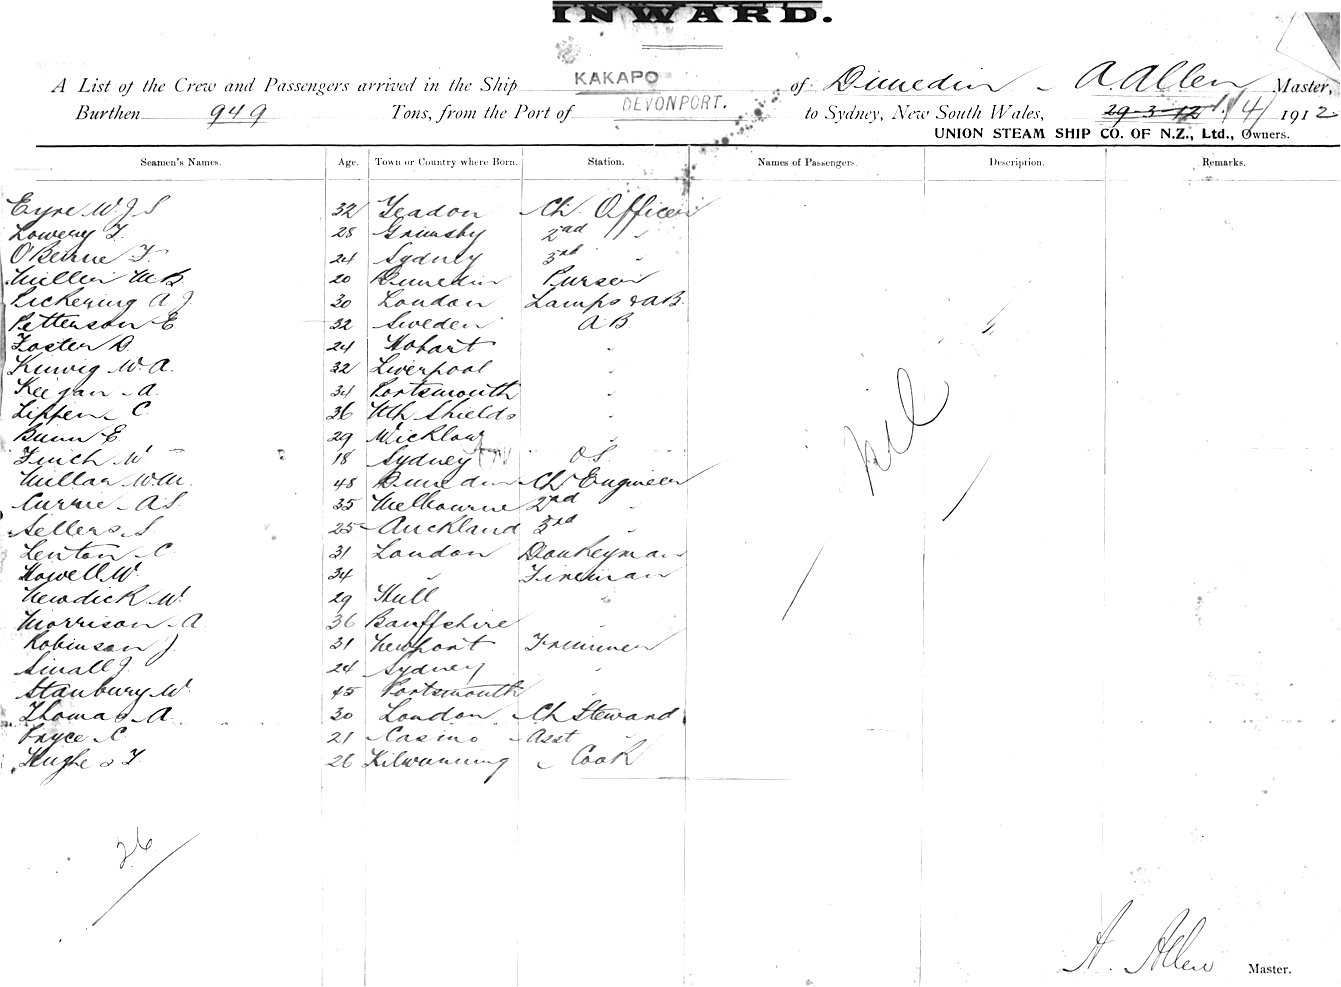 INWARD.
A List of the Crew and Passengers arrived in the Ship KAKAPO of Dunedin A. Allen Master,
Burthen 949 Tons, from the Port of DEVONPORT. to Sydney, New South Wales, 29-3-12 1/4/ 1912
UNION STEAM SHIP CO. OF N.Z., Ltd., Owners.
Seamen's Names. Age. Town or Country where Born. Station. Names of Passengers. Description. Remarks.
Eyre W.J.S 32 Yeadon Ch. Officer
Lowery T. 28 Grimsby 2nd "
O'Beirne F 24 Sydney 3rd "
Miller M.B. 20 Dunedin Purser
Pickering A J 30 London Lamps & AB.
Petterson E 32 Sweden A B.
Foster D 24 Hobart "
W. A. 32 Liverpool "
Keegan A. 34 Portsmouth "
Lippen C 36 Nth Shields "
Bunn E 29 Wicklow "
Finch W 18 Sydney O S.
Millar Wm. 48 Dunedin Ch Engineer
Currie A S. 35 Melbourne 2nd "
Sellers S 25 Auckland 3rd "
Lenton C 31 London Donkeyman
Howell W. 34 " Fireman
Newdick W. 29 Hull "
Morrison A 36 Banffshire "
Robinson J. 31 Newport Trimmer
Small J. 24 Sydney "
Stanbury W 45 Portsmouth "
Thomas A. 30 London Ch Steward
Pryce C 21 Casino Asst "
Hughes T. 26 Kilwinning Cook
nil
26
A. Allen Master.